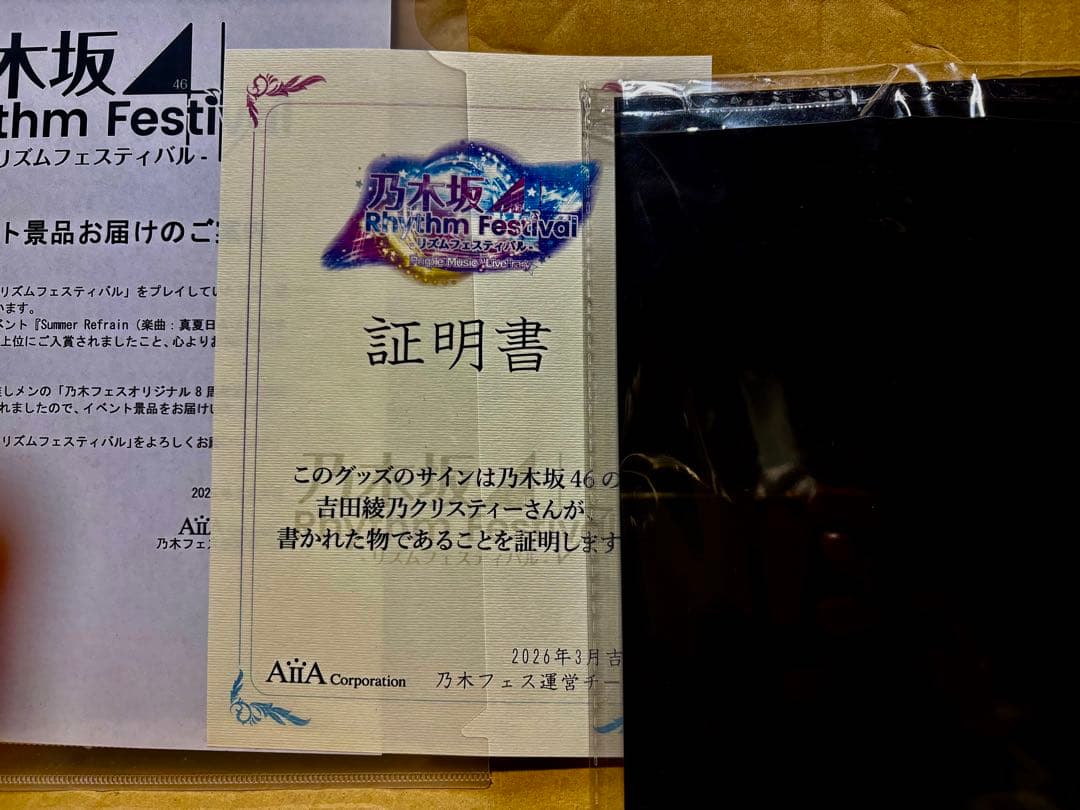 木坂
46
thm Festi
リズムフェスティバル -
ト景品お届けのご
リズムフェスティバル」をプレイしてい
います。
ベント『Summer Refrain（楽曲：真夏日
上位にご入賞されましたこと、心よりお
推しメンの「乃木フェスオリジナル8周
されましたので、イベント景品をお届けい
リズムフェスティバル」をよろしくお願
202
AiiA
乃木フェス
乃木坂
Rhythm Festival
- リズムフェスティバル -
証明書
このグッズのサインは乃木坂46の
吉田綾乃クリスティーさんが、
書かれた物であることを証明します
2026年3月吉
AiiA Corporation
乃木フェス運営チー
乃木坂
Rhythm Festival
- リズムフェスティバル -